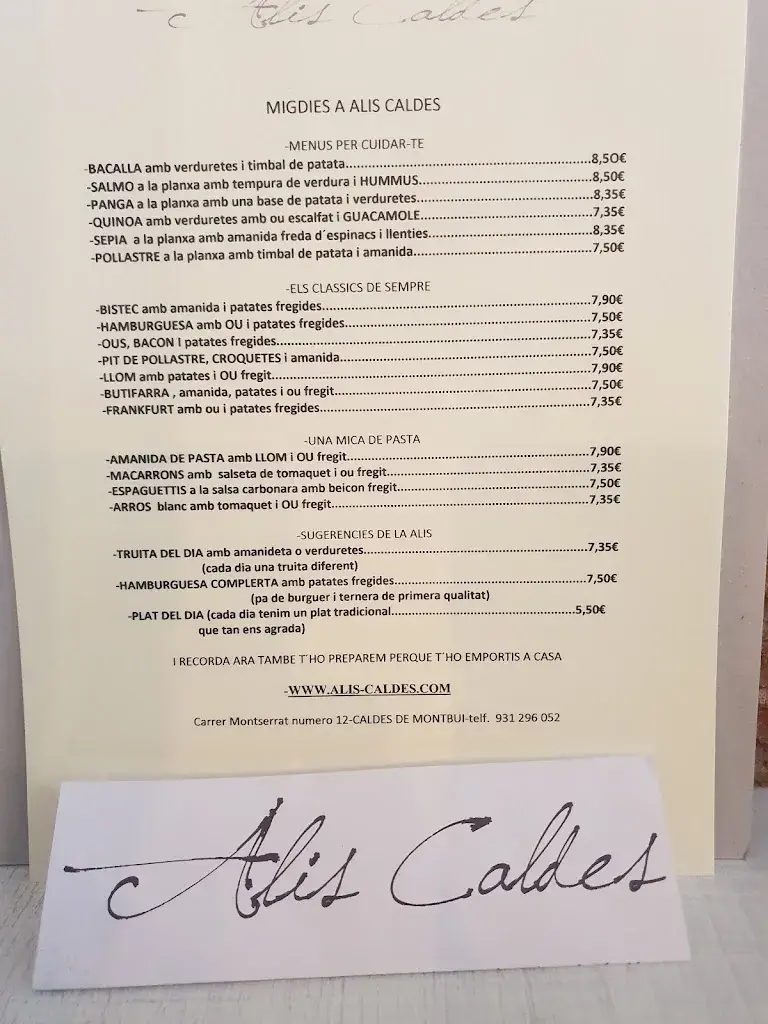 Alis Caldes
MIGDIES A ALIS CALDES
-MENUS PER CUIDAR-TE
-BACALLA amb verduretes i timbal de patata..............................................................8,50€
-SALMO a la planxa amb tempura de verdura i HUMMUS............................................8,50€
-PANGA a la planxa amb una base de patata i verduretes............................................8,35€
-QUINOA amb verduretes amb ou escalfat i GUACAMOLE...........................................7,35€
-SEPIA  a la planxa amb amanida freda d´espinacs i llenties.........................................8,35€
-POLLASTRE a la planxa amb timbal de patata i amanida.............................................7,50€
-ELS CLASSICS DE SEMPRE
-BISTEC amb amanida i patates fregides....................................................................7,90€
-HAMBURGUESA amb OU i patates fregides..............................................................7,50€
-OUS, BACON I patates fregides................................................................................7,35€
-PIT DE POLLASTRE, CROQUETES i amanida...............................................................7,50€
-LLOM amb patates i OU fregit.................................................................................7,90€
-BUTIFARRA , amanida, patates i ou fregit.................................................................7,50€
-FRANKFURT amb ou i patates fregides.....................................................................7,35€
-UNA MICA DE PASTA
-AMANIDA DE PASTA amb LLOM i OU fregit..............................................................7,90€
-MACARRONS amb  salseta de tomaquet i ou fregit....................................................7,35€
-ESPAGUETTIS a la salsa carbonara amb beicon fregit.................................................7,50€
-ARROS  blanc amb tomaquet i OU fregit...................................................................7,35€
-SUGERENCIES DE LA ALIS
-TRUITA DEL DIA amb amanideta o verduretes...........................................................7,35€
(cada dia una truita diferent)
-HAMBURGUESA COMPLERTA amb patates fregides...................................................7,50€
(pa de burguer i ternera de primera qualitat)
-PLAT DEL DIA (cada dia tenim un plat tradicional................................................5,50€
que tan ens agrada)
I RECORDA ARA TAMBE T´HO PREPAREM PERQUE T´HO EMPORTIS A CASA
-WWW.ALIS-CALDES.COM
Carrer Montserrat numero 12-CALDES DE MONTBUI-telf.  931 296 052
Alis Caldes